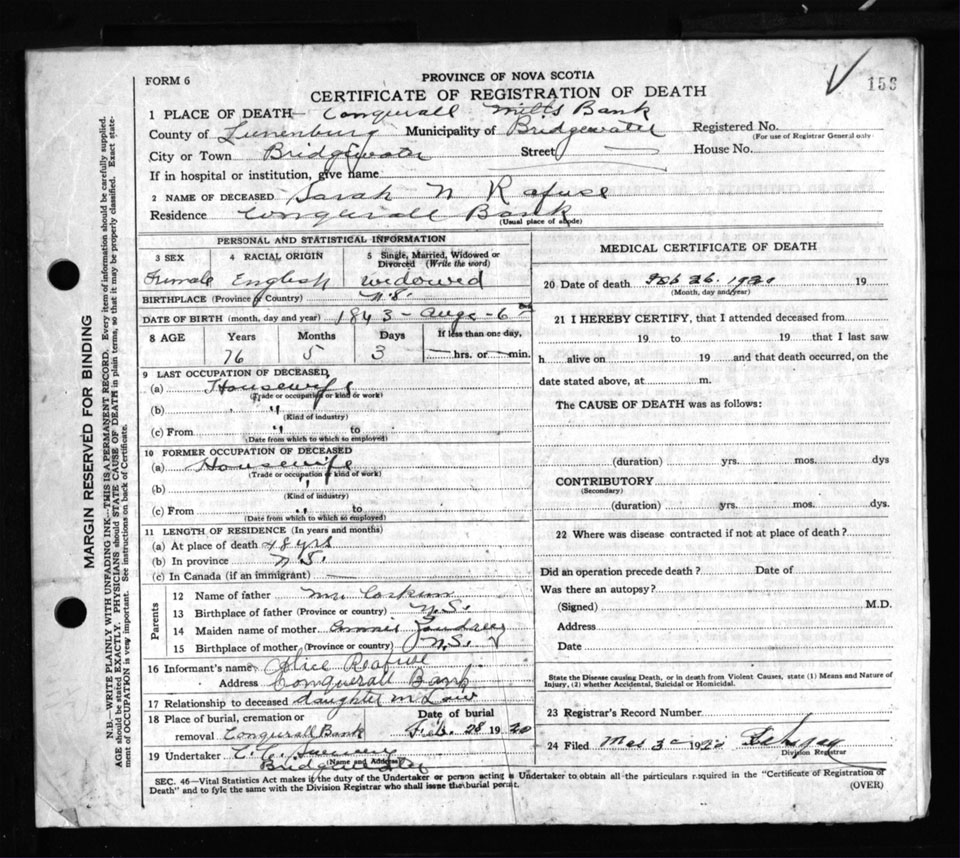 156
FORM 6
PROVINCE OF NOVA SCOTIA
CERTIFICATE OF REGISTRATION OF DEATH
1 PLACE OF DEATH— Conquerall Mills Bank
County of Lunenburg Municipality of Bridgewater Registered No.
(For use of Registrar General only)
City or Town Bridgewater Street House No.
If in hospital or institution, give name
2 NAME OF DECEASED Sarah N Rafuse
Residence Conquerall Bank
(Usual place of abode)
PERSONAL AND STATISTICAL INFORMATION
3 SEX 4 RACIAL ORIGIN 5 Single, Married, Widowed or Divorced (Write the word)
Female English widowed
BIRTHPLACE (Province or Country) N.S.
DATE OF BIRTH (month, day and year) 1843 - Aug - 6
8 AGE Years Months Days If less than one day,
76 5 3 hrs. or min.
9 LAST OCCUPATION OF DECEASED
(a) Housewife
(Trade or occupation or kind of work)
(b) "
(Kind of industry)
(c) From " to
(Date from which to which so employed)
10 FORMER OCCUPATION OF DECEASED
(a) Housewife
(Trade or occupation or kind of work)
(b) "
(Kind of industry)
(c) From " to
(Date from which to which so employed)
11 LENGTH OF RESIDENCE (In years and months)
(a) At place of death 48 yrs
(b) In province N.S.
(c) In Canada (if an immigrant) —
Parents
12 Name of father
13 Birthplace of father (Province or country) N.S.
14 Maiden name of mother
15 Birthplace of mother (Province or country) N.S.
16 Informant's name Alice Reafuse
Address Conquerall Bank
17 Relationship to deceased daughter in Law
18 Place of burial, cremation or Date of burial
removal Conquerall Bank Feb. 28 1920
19 Undertaker C. C.
Bridgewater
(Name and Address)
MEDICAL CERTIFICATE OF DEATH
20 Date of death Feb 26. 1920 19
(Month, day and year)
21 I HEREBY CERTIFY, that I attended deceased from
19 to 19 that I last saw
h alive on 19 and that death occurred, on the
date stated above, at m.
The CAUSE OF DEATH was as follows:
(duration) yrs. mos. dys
CONTRIBUTORY
(Secondary)
(duration) yrs. mos. dys.
22 Where was disease contracted if not at place of death?
Did an operation precede death? Date of
Was there an autopsy?
(Signed) M.D.
Address
Date
State the Disease causing Death, or in death from Violent Causes, state (1) Means and Nature of
Injury, (2) whether Accidental, Suicidal or Homicidal.
23 Registrar's Record Number
24 Filed 1920
Division Registrar
SEC. 46—Vital Statistics Act makes it the duty of the Undertaker or person acting as Undertaker to obtain all the particulars required in the "Certificate of Registration of
Death" and to fyle the same with the Division Registrar who shall issue the burial permit.
(OVER)
MARGIN RESERVED FOR BINDING
N.B.—WRITE PLAINLY WITH UNFADING INK—THIS IS A PERMANENT RECORD. Every item of information should be carefully supplied.
AGE should be stated EXACTLY. PHYSICIANS should STATE CAUSE OF DEATH in plain terms, so that it may be properly classified. Exact state-
ment of OCCUPATION is very important. See instructions on back of Certificate.